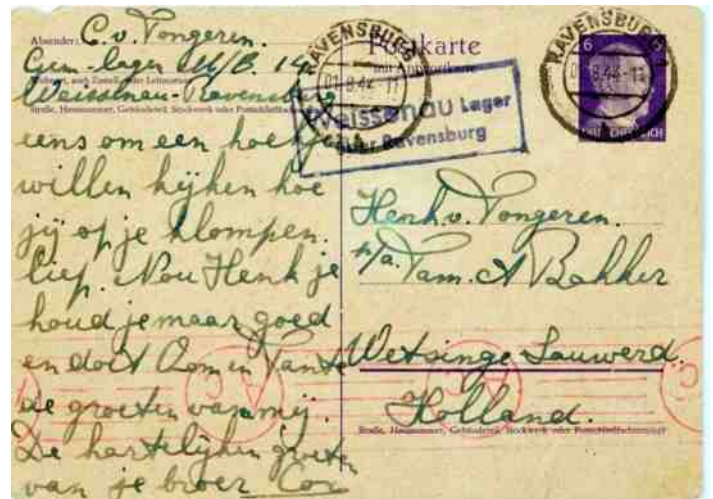 Absender: C. v. Tongeren.
Gem.-lager
Weissenau-Ravensburg
Straße, Hausnummer, Gebäudeteil, Stockwerk oder Postschließfachnummer
eens om een hoekje
willen kijken hoe
jij op je klompen.
liep. Nou Henk je
houd je maar goed
en doet Oom en Tante
de groeten van mij.
De hartelijken groeten
van je broer Cor
Postkarte
mit Antwortkarte
RAVENSBURG
Weissenau Lager
über Ravensburg
RAVENSBURG
6
6
Henk. v. Tongeren.
p/a. Fam. A Bakker
Wetsinge Sauwerd.
Holland.
Straße, Hausnummer, Gebäudeteil, Stockwerk oder Postschließfachnummer